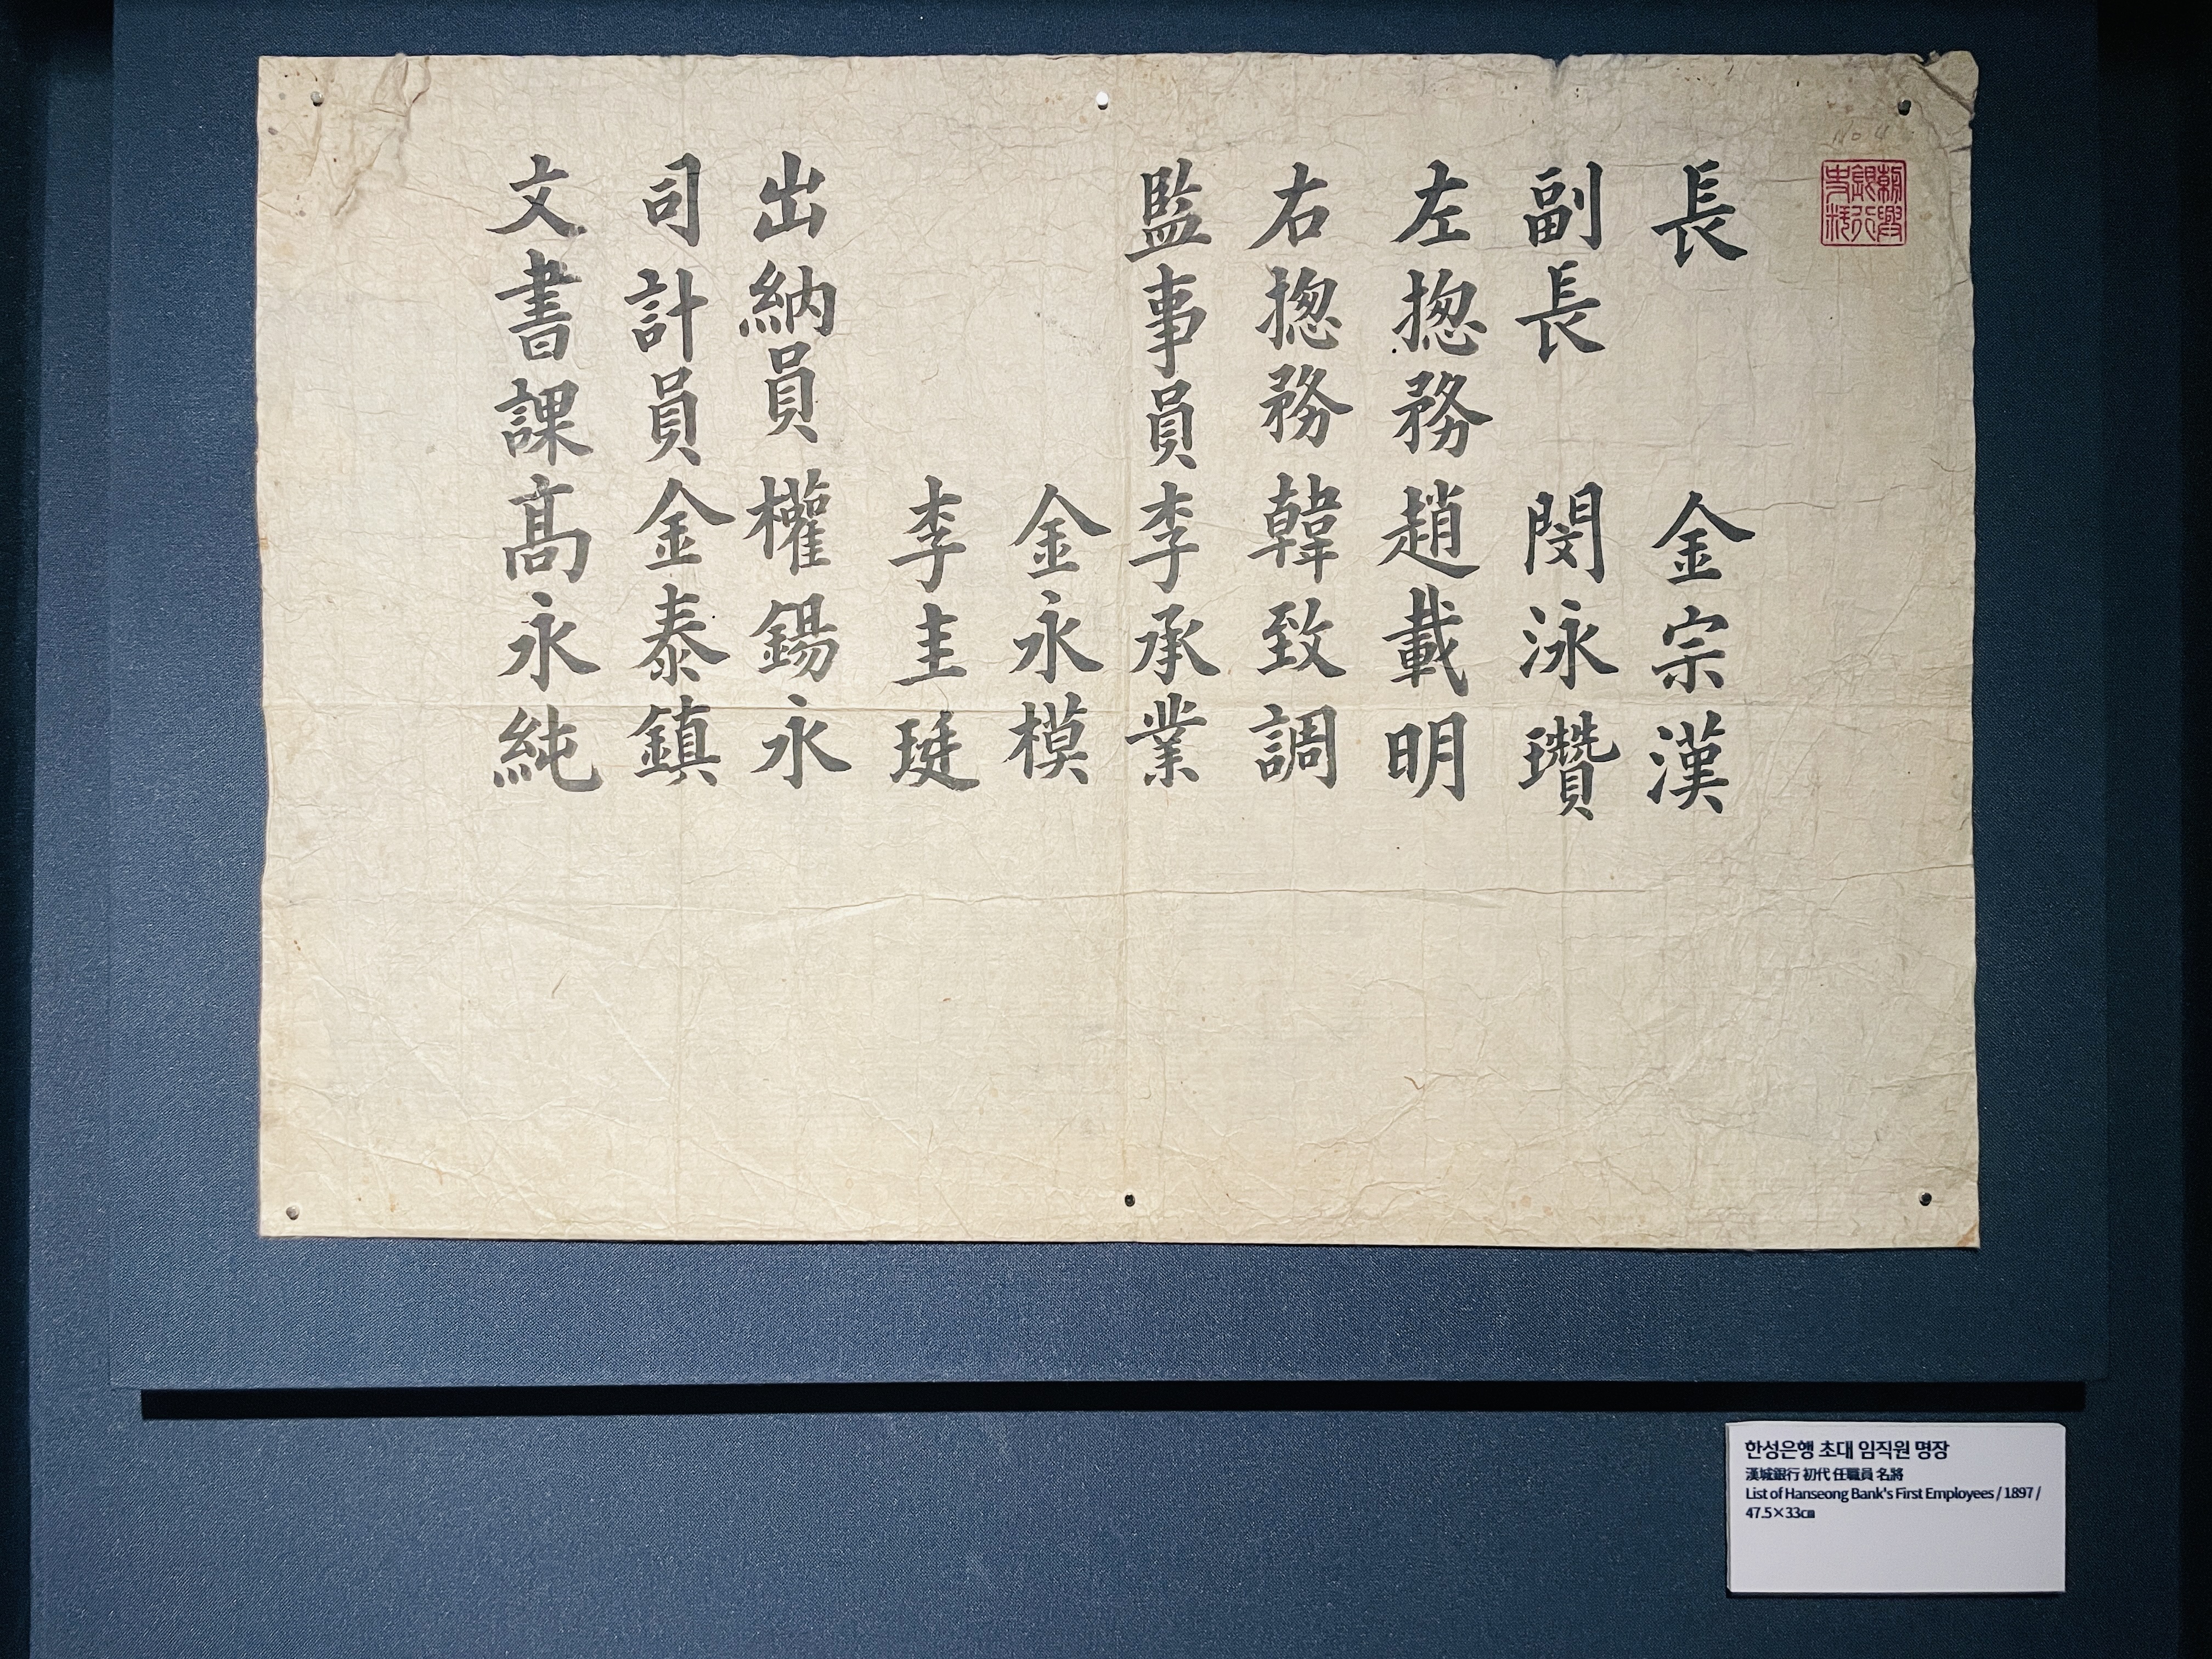 朝興
銀行
史料
長 金宗漢
副長 閔泳瓚
左揔務趙載明
右揔務韓致調
監事員李承業
金永模
李圭珽
出納員權錫永
司計員金泰鎮
文書課髙永純
한성은행 초대 임직원 명장
漢城銀行 初代 任職員 名將
List of Hanseong Bank's First Employees / 1897 /
47.5×33㎝